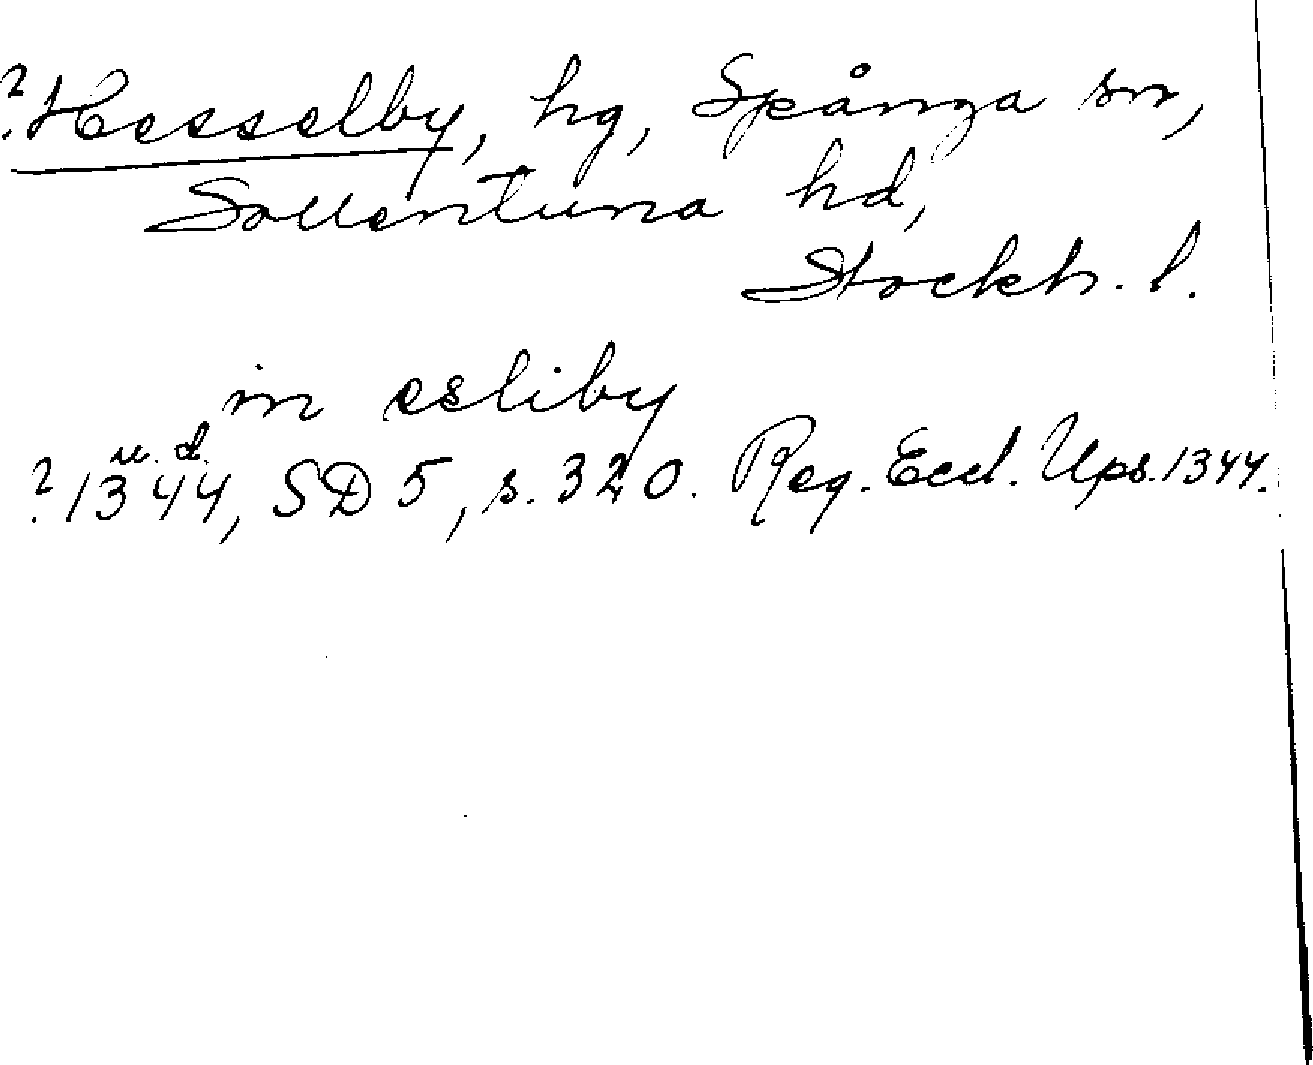 ? Hesselby, hg, Spånga sn,
Sollentuna hd,
Stockh. l.
in esliby
u. d.
? 1344, SD 5, s. 320. Reg. Eccl. Ups. 1344.